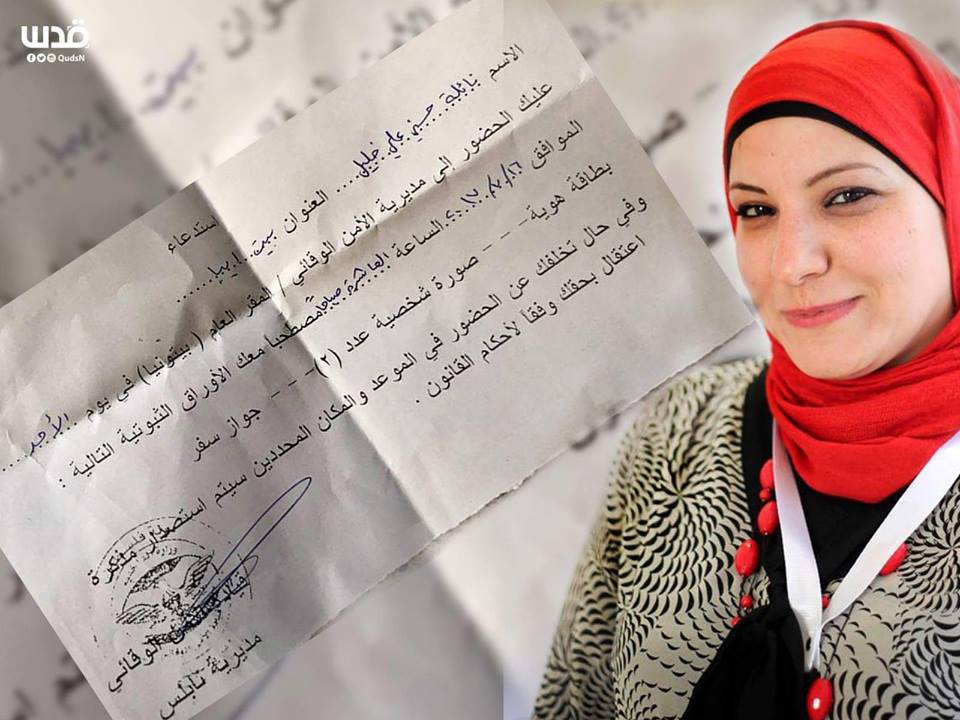 قدس
QudsN
استدعاء
الاسم نائلة حسين علي خليل .... العنوان بيت ايبا ......
عليك الحضور الى مديرية الأمن الوقائي / المقر العام (بيتونيا) في يوم ..الأحد....
الموافق ١٦/٧/٢٠١٧ الساعة العاشرة صباحاً مصطحبا معك الأوراق الثبوتية التالية :
بطاقة هوية - - - صورة شخصية عدد (٢) - - - جواز سفر
وفي حال تخلفك عن الحضور في الموعد والمكان المحددين سيتم استصدار مذكرة
اعتقال بحقك وفقا لأحكام القانون .
الوقائي
مديرية نابلس